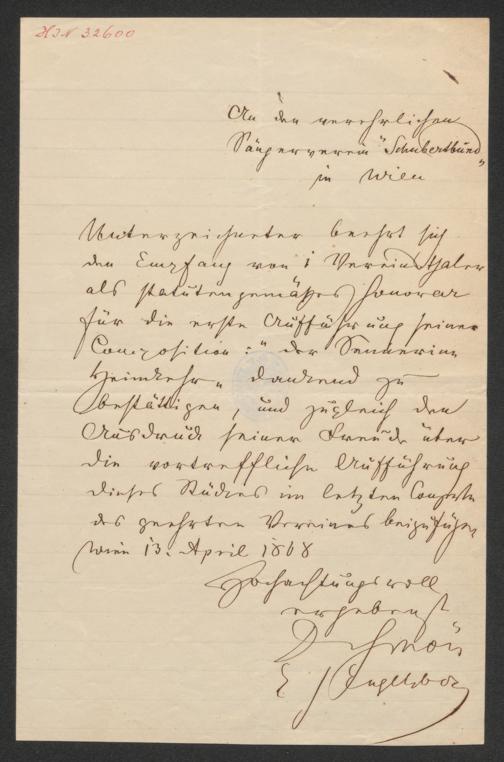 HIN 32600
An den verehrlichen
Sängerverein "Schubertbund"
in Wien
Unterzeichneter beehrt sich
den Empfang von 1 Vereinsthaler
als statutengemäßes Honorar
für die erste Aufführung seiner
Composition: "der Sennerin
Heimkehr" dankend zu
bestättigen, und zugleich den
Ausdruck seiner Freude über
die vortreffliche Aufführung
dieses Stückes im letzten Concerte
des geehrten Vereines beizufügen
Wien 13. April 1868
Hochachtungsvoll
ergebenst
Dr Schön
E S Engelsberg